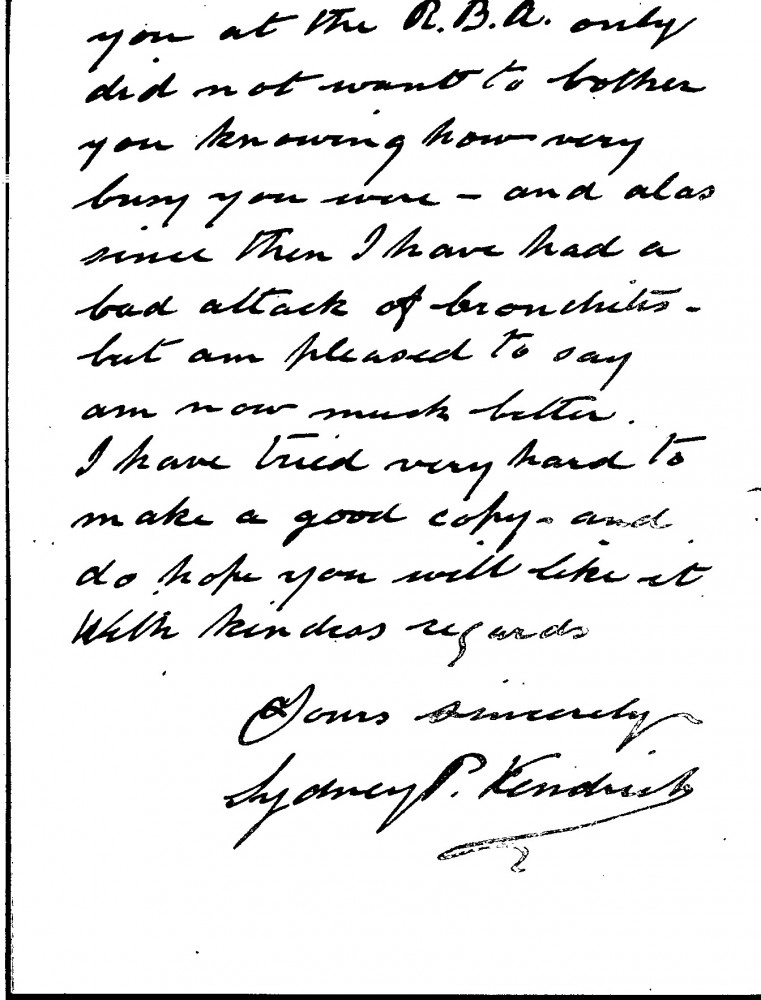 you at the R.B.A. only
did not want to bother
you knowing how very
busy you were - and alas
since then I have had a
bad attack of bronchitis -
but am pleased to say
am now much better.
I have tried very hard to
make a good copy - and
do hope you will like it
With kindess regards
Yours sincerely
Sydney P. Kendrick